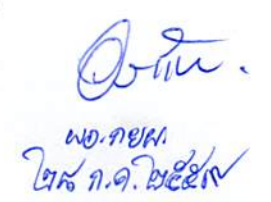 ผอ.กยผ.
๒๘ ก.ค. ๒๕๕๙